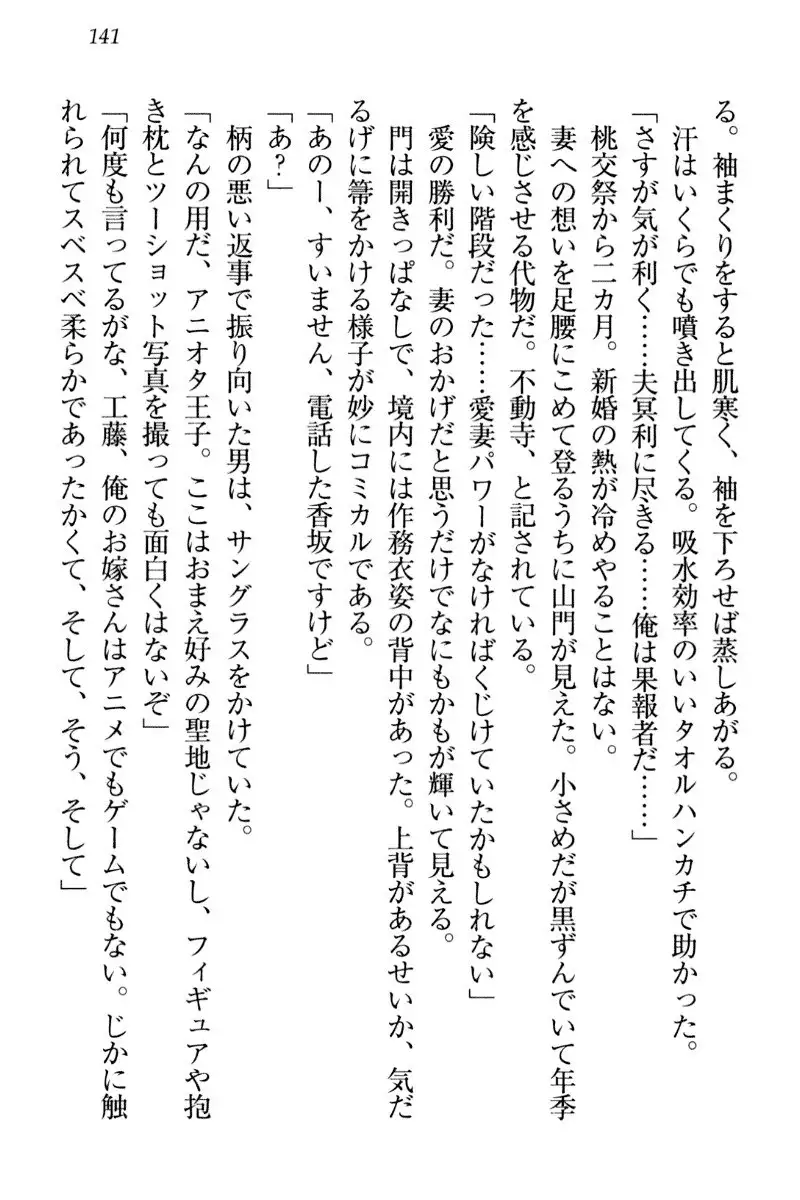 141
る。袖まくりをすると肌寒く、袖を下ろせば蒸しあがる。
汗はいくらでも噴き出してくる。吸水効率のいいタオルハンカチで助かった。
「さすが気が利く……夫冥利に尽きる……俺は果報者だ……」
桃交祭から二カ月。新婚の熱が冷めやることはない。
妻への想いを足腰にこめて登るうちに山門が見えた。小さめだが黒ずんでいて年季
を感じさせる代物だ。不動寺、と記されている。
「険しい階段だった……愛妻パワーがなければくじけていたかもしれない」
愛の勝利だ。妻のおかげだと思うだけでなにもかもが輝いて見える。
門は開きっぱなしで、境内には作務衣姿の背中があった。上背があるせいか、気だ
るげに箒をかける様子が妙にコミカルである。
「あのー、すいません、電話した香坂ですけど」
「あ?」
柄の悪い返事で振り向いた男は、サングラスをかけていた。
「なんの用だ、アニオタ王子。ここはおまえ好みの聖地じゃないし、フィギュアや抱
き枕とツーショット写真を撮っても面白くはないぞ」
「何度も言ってるがな、工藤、俺のお嫁さんはアニメでもゲームでもない。じかに触
れられてスベスベ柔らかであったかくて、そして、そう、そして」